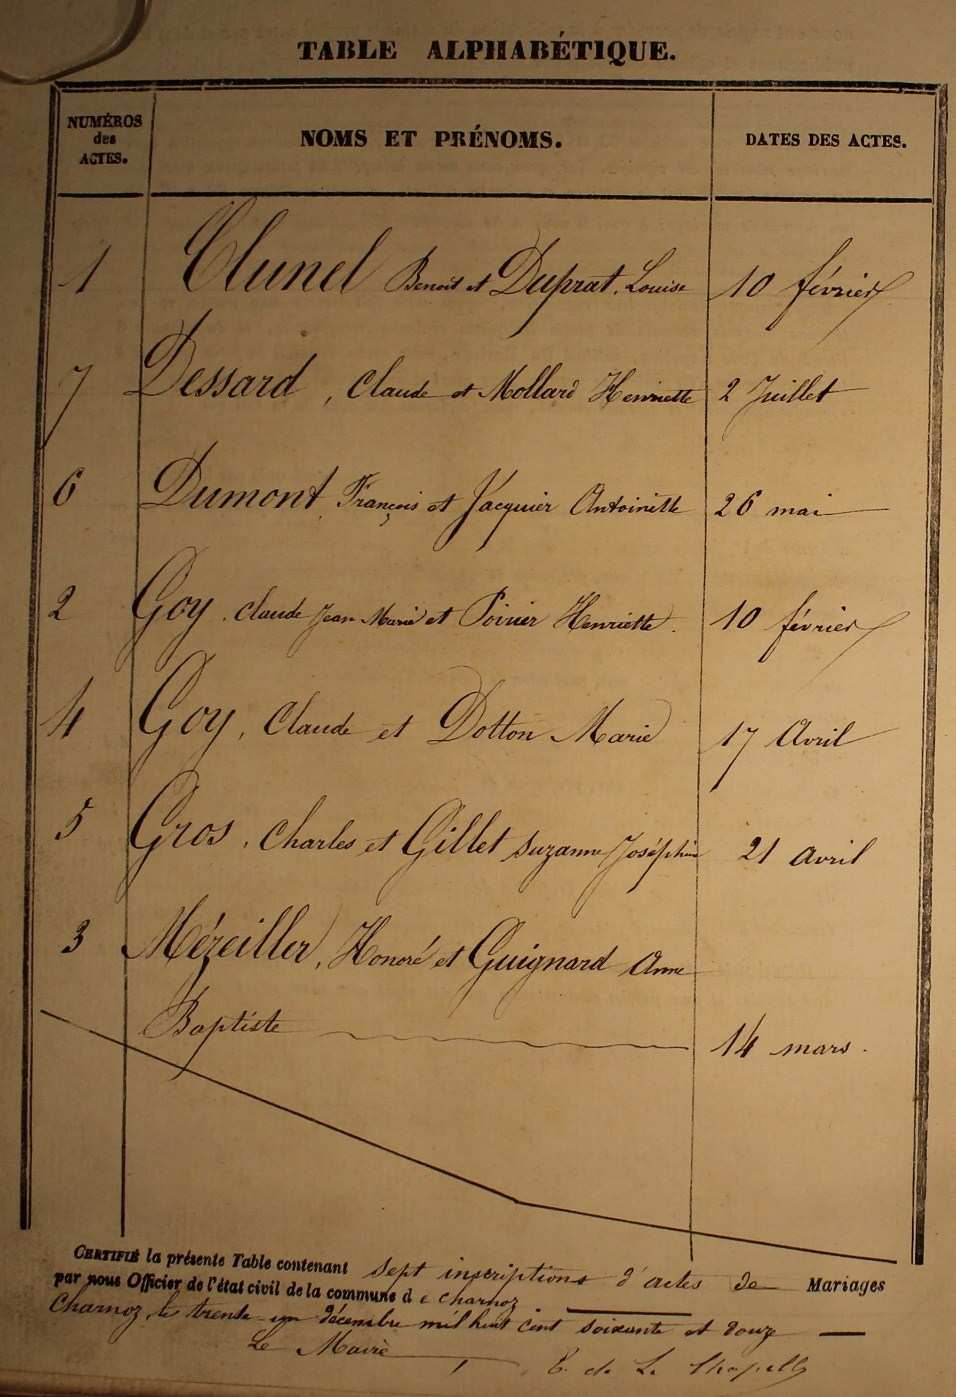 TABLE ALPHABÉTIQUE.
NUMÉROS des ACTES. NOMS ET PRÉNOMS. DATES DES ACTES.
1 Clunel Benoit et Duprat, Louise 10 février
7 Dessard, Claude et Mollard Henriette 2 Juillet
6 Dumont, François et Jacquier Antoinette 26 mai
2 Goy, Claude Jean Marie et Poirier Henriette. 10 février
4 Goy, Claude et Dotton Marie 17 Avril
5 Gros, Charles et Gillet Suzanne Joséphine 21 avril
3 Mézeiller, Honoré et Guignard Anne
Baptiste 14 mars.
CERTIFIÉ la présente Table contenant sept inscriptions d'actes de Mariages
par nous Officier de l'état civil de la commune de Charnoz.
Charnoz, le trente-un décembre mil huit cent soixante et douze
Le Maire E. de La Chapelle